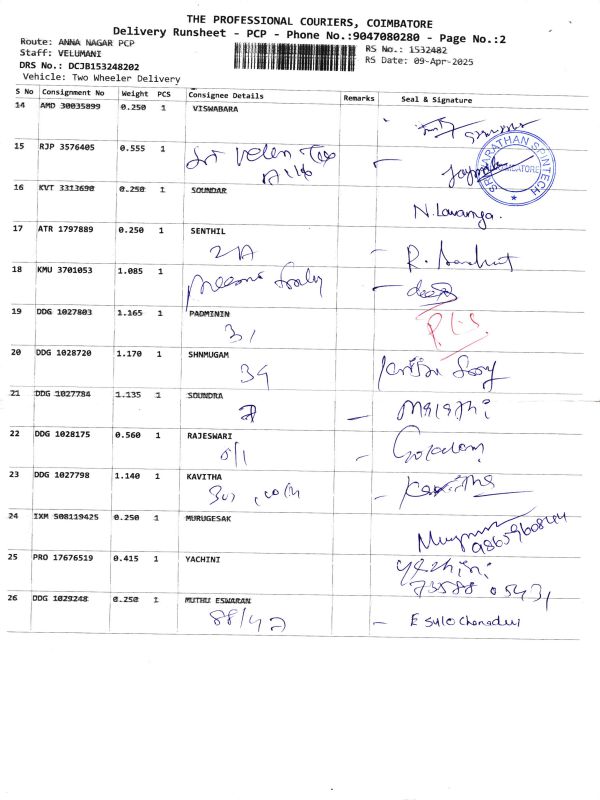 THE PROFESSIONAL COURIERS, COIMBATORE
Delivery Runsheet - PCP - Phone No.:9047080280 - Page No.:2
Route: ANNA NAGAR PCP
RS No.: 1532482
Staff: VELUMANI
RS Date: 09-Apr-2025
DRS No.: DCJB153248202
Vehicle: Two Wheeler Delivery
S No Consignment No Weight PCS Consignee Details Remarks Seal & Signature
14 AMD 30035899 0.250 1 VISWABARA
15 RJP 3576405 0.555 1
Sri Velen Tex
16 KVT 3313690 0.250 1 SOUNDAR
N. Lavanya.
17 ATR 1797889 0.250 1 SENTHIL
21A
18 KMU 3701053 1.085 1
19 DDG 1027803 1.165 1 PADMININ
31 P.L.S.
20 DDG 1028720 1.170 1 SHNMUGAM
39
21 DDG 1027784 1.135 1 SOUNDRA
7 Malathi
22 DDG 1028175 0.560 1 RAJESWARI
23 DDG 1027798 1.140 1 KAVITHA
Kavitha
24 IXM 508119425 0.250 1 MURUGESAK
9865960844
25 PRO 17676519 0.415 1 YACHINI
Yazhini
73588 05431
26 DDG 1029248 0.250 1 MUTHU ESWARAN
88/47 E Sulochanadevi